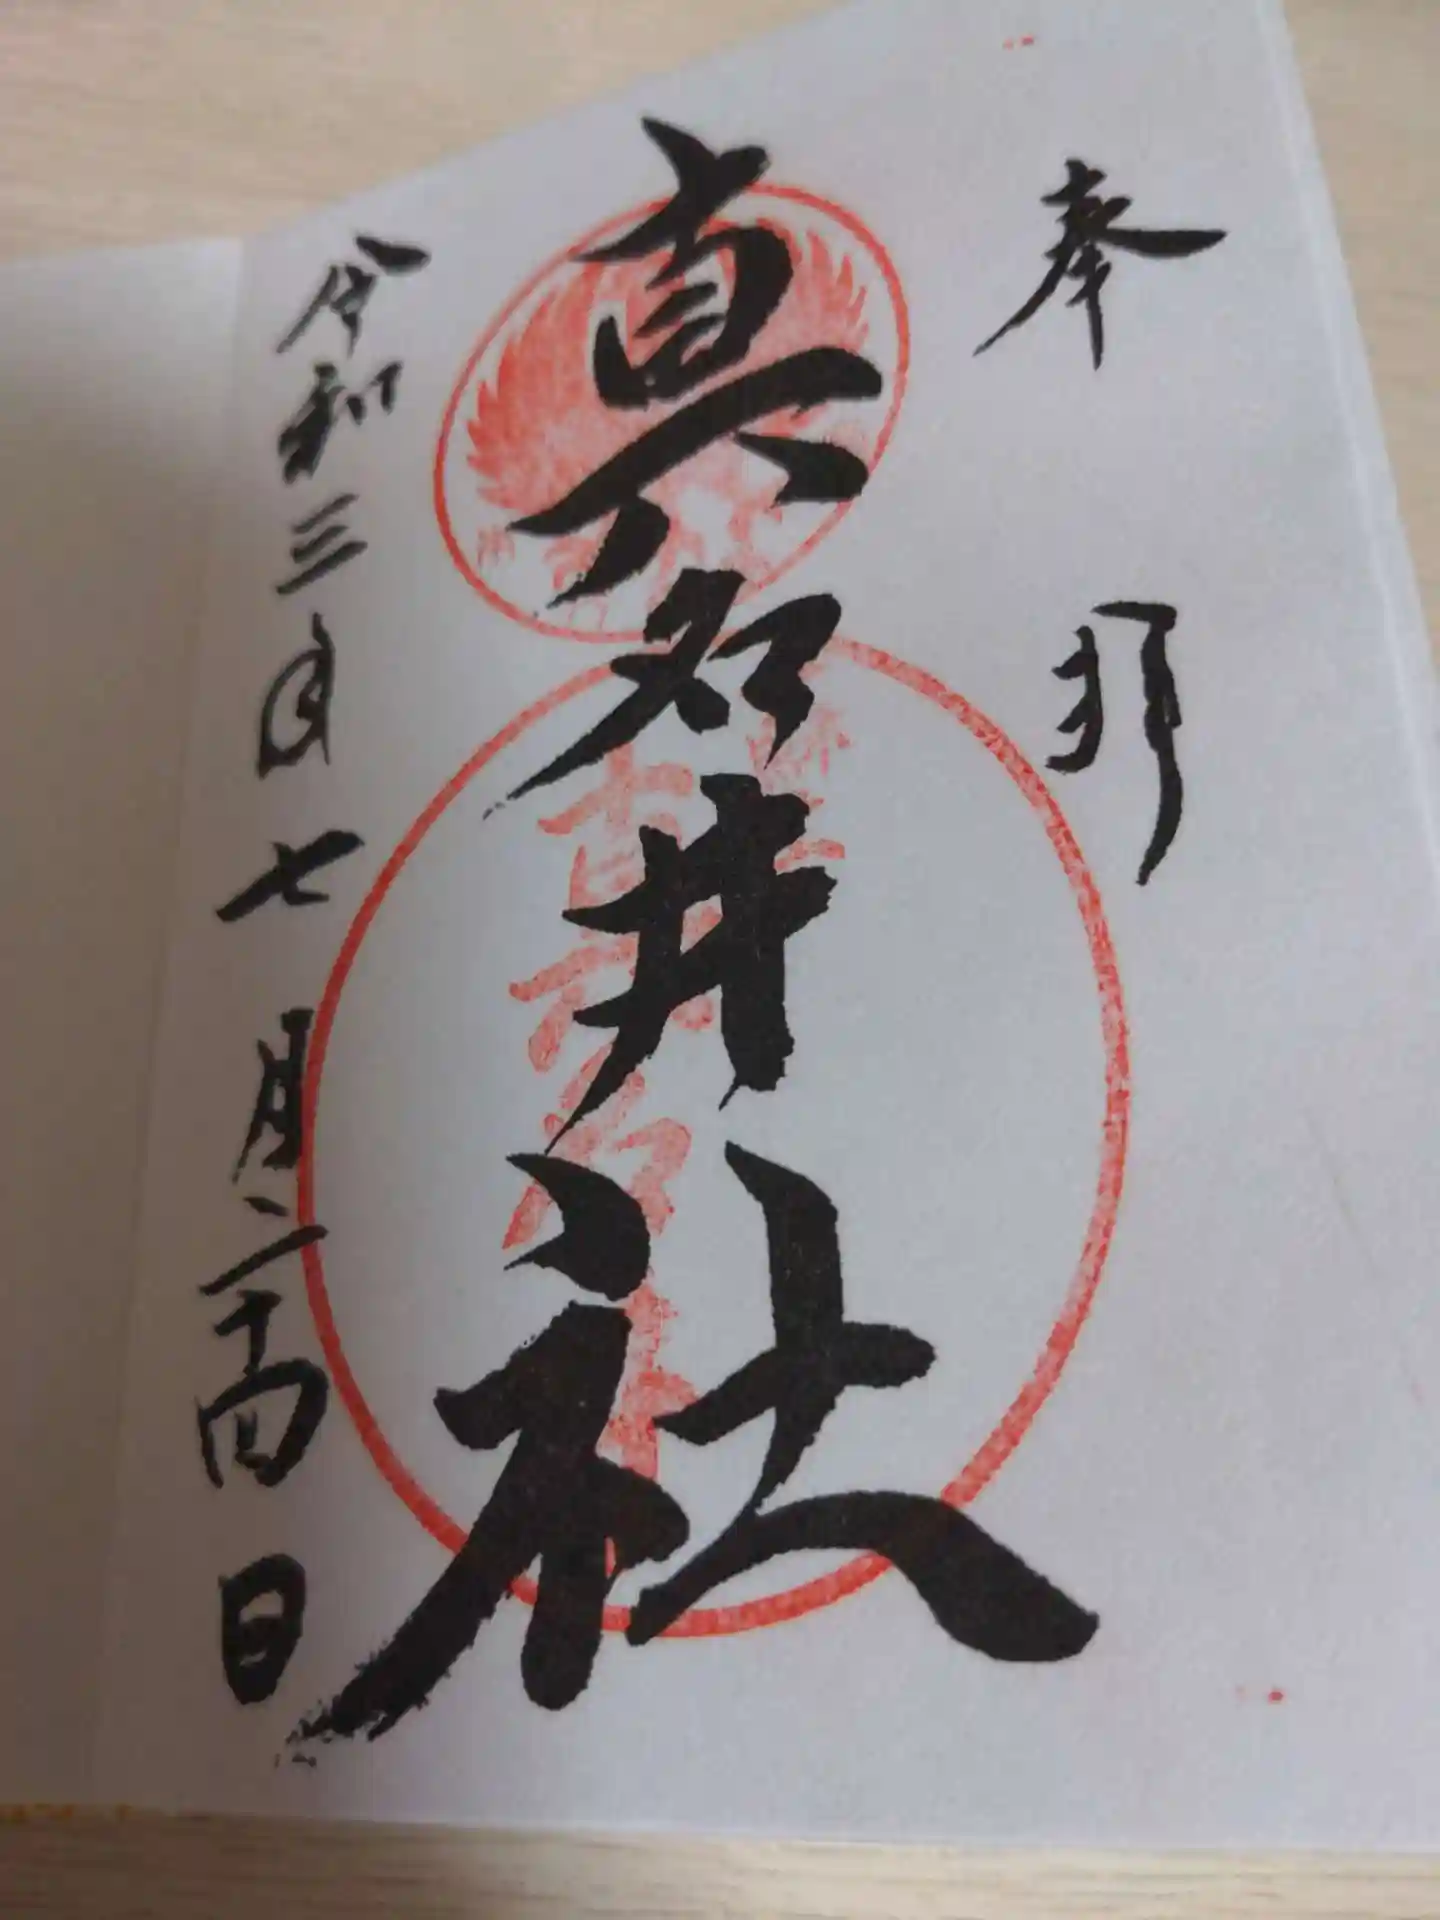 奉拝
真名井社
令和三年七月二十四日